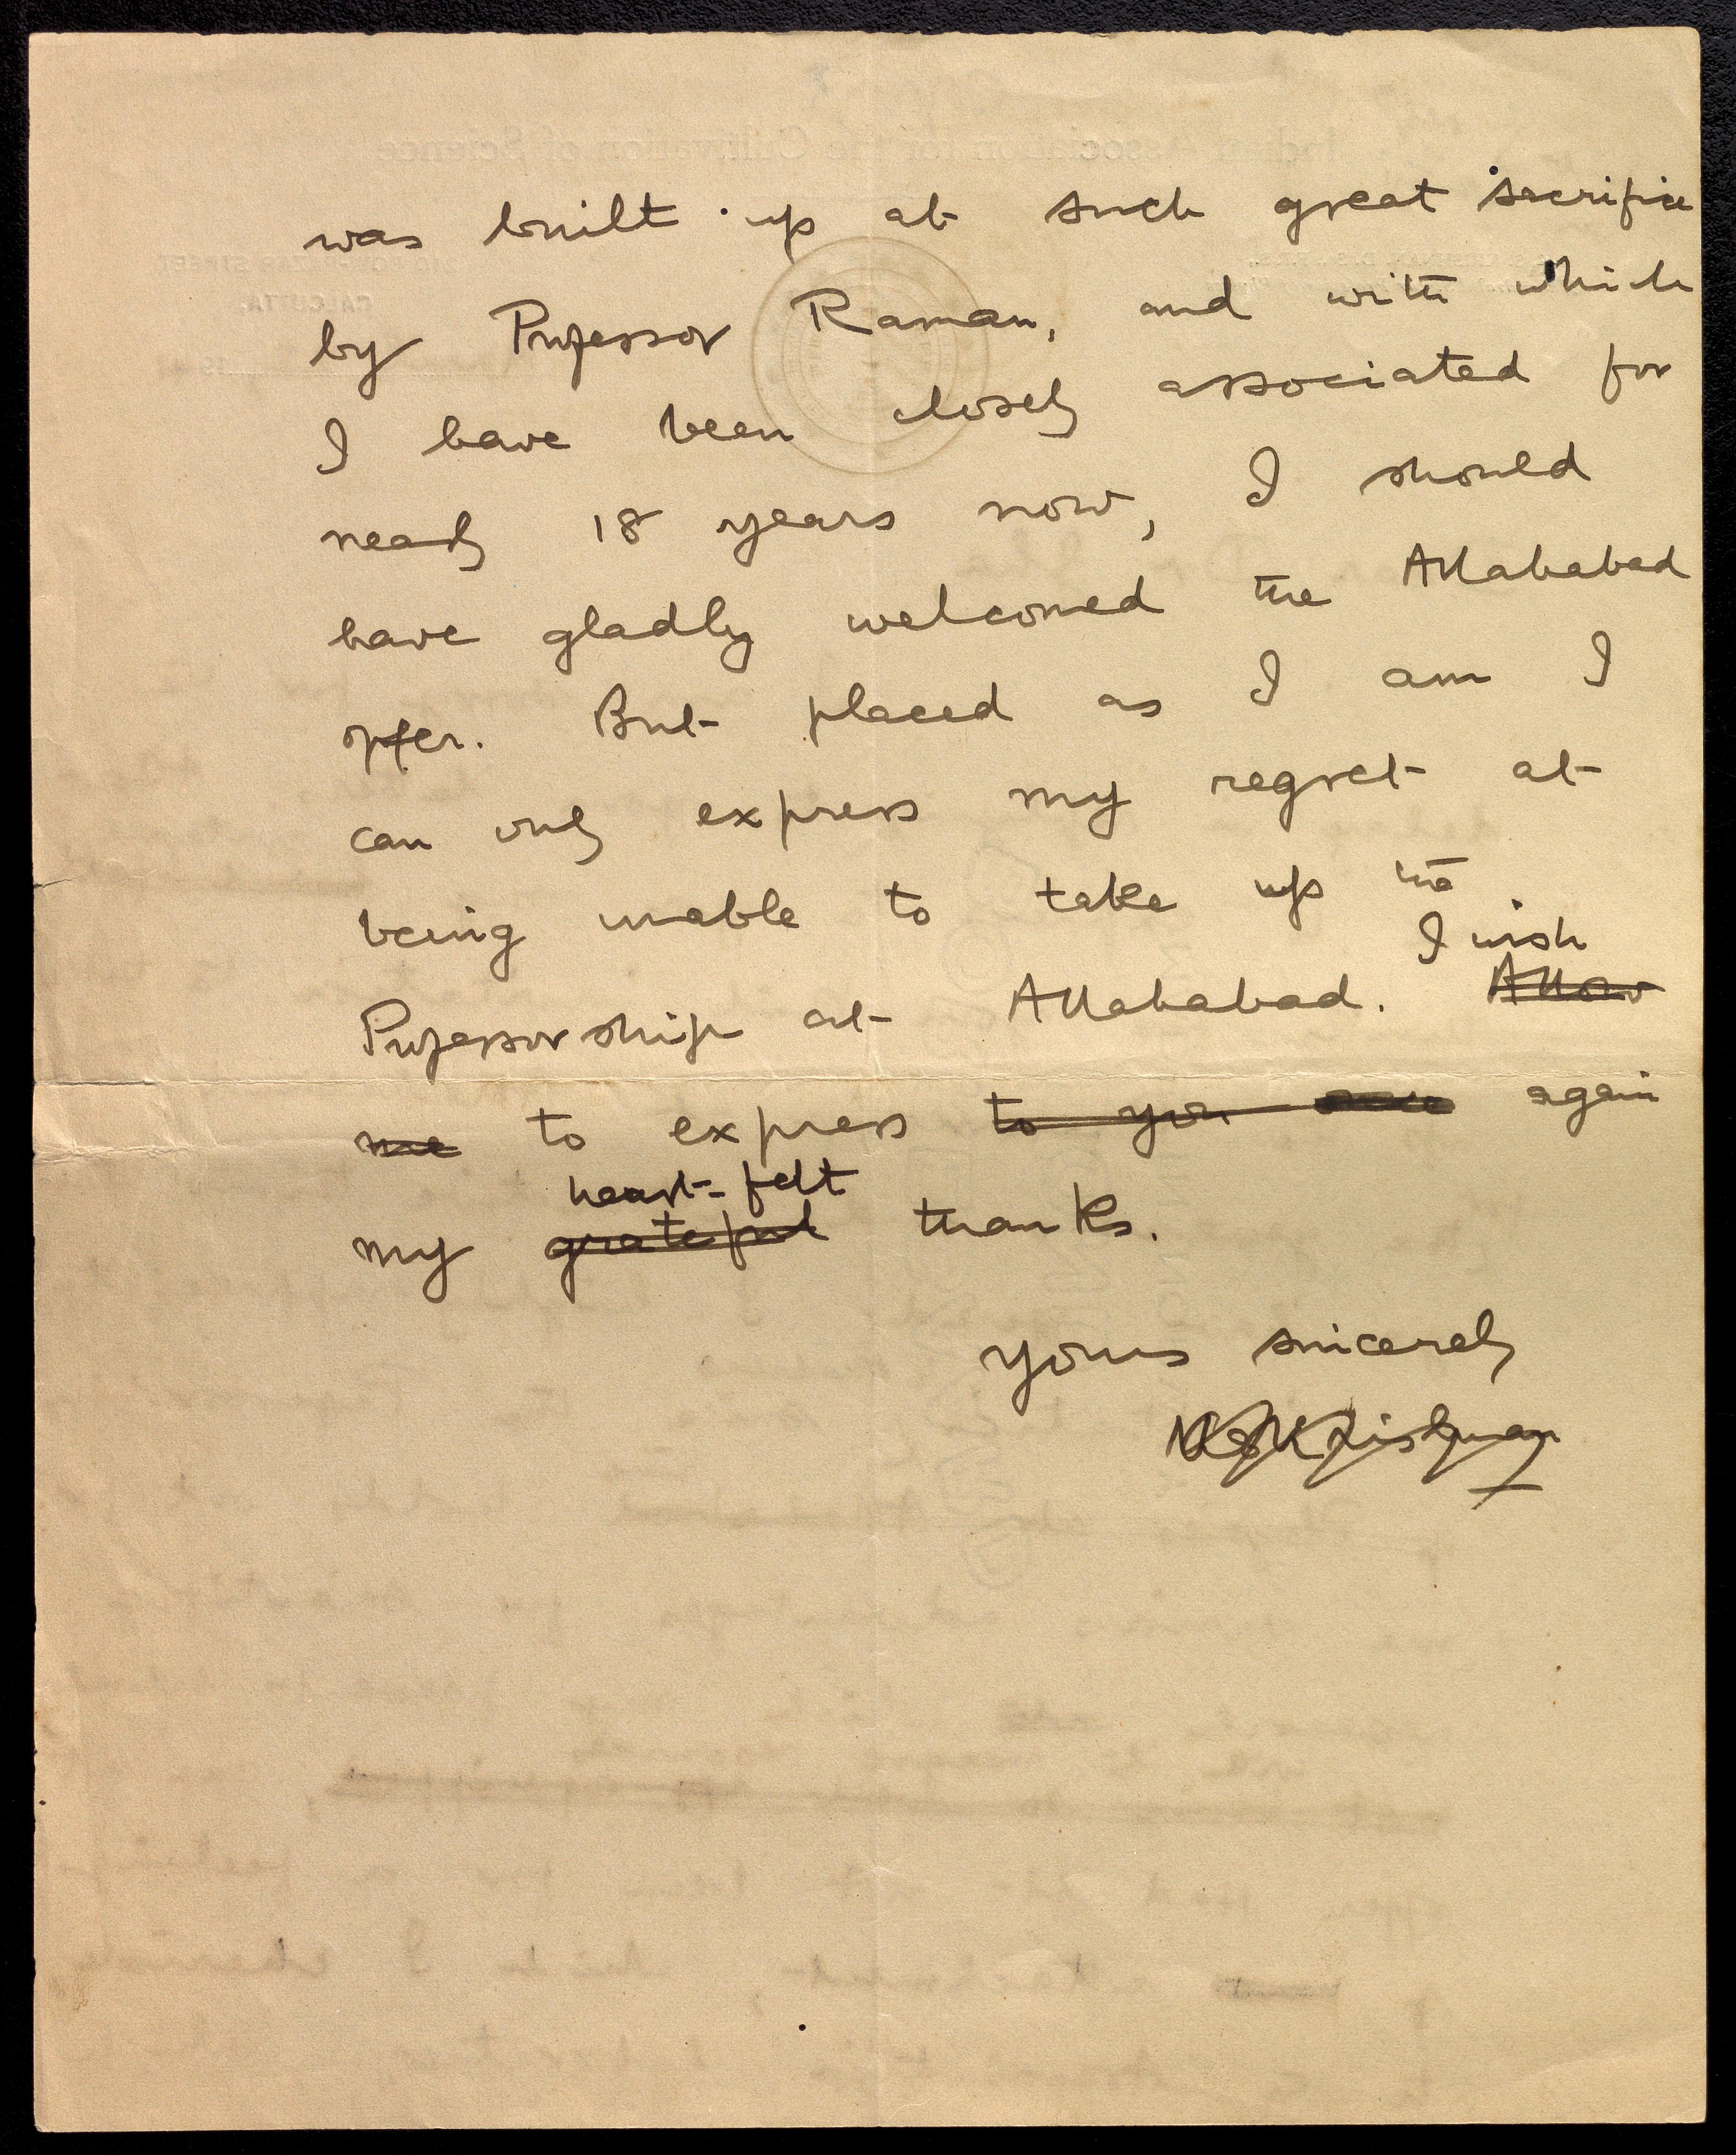 was built up at such great sacrifice
by Professor Raman, and with which
I have been closely associated for
nearly 18 years now, I should
have gladly welcomed the Allahabad
offer. But placed as I am I
can only express my regret at
being unable to take up the
Professorship at Allahabad. I wish
Allow
me to express to you once again
heart-felt
my grateful thanks.
Yours sincerely
KS Krishnan
Indian Association for the Cultivation of Science
210 BOWBAZAR STREET
CALCUTTA